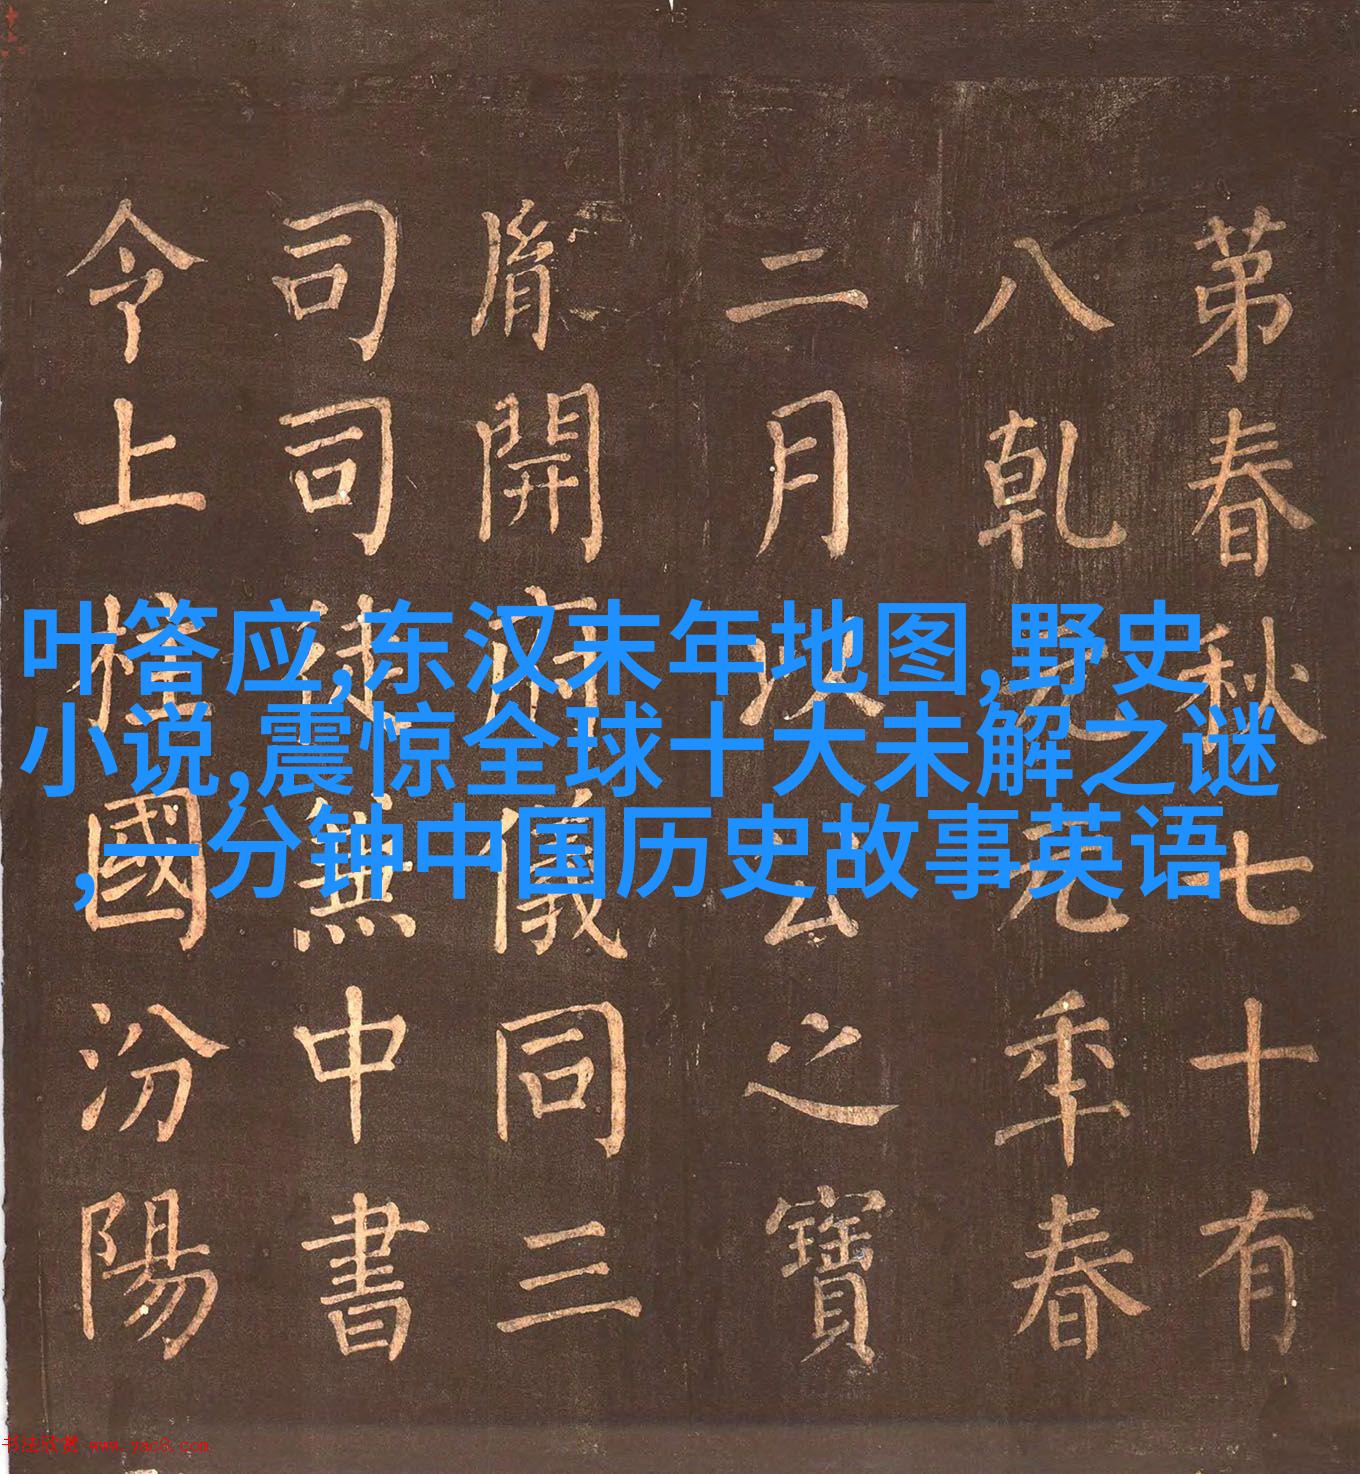 叶答应,东汉末年地图,野史
小说,震惊全球十大未解之谜
,一分钟中国历史故事英语
苐春秋七十有
八乾元年春
二月之寶
胤開府儀同三
司司徒中書
令上柱國汾陽
书法欣赏 www.yac8.com